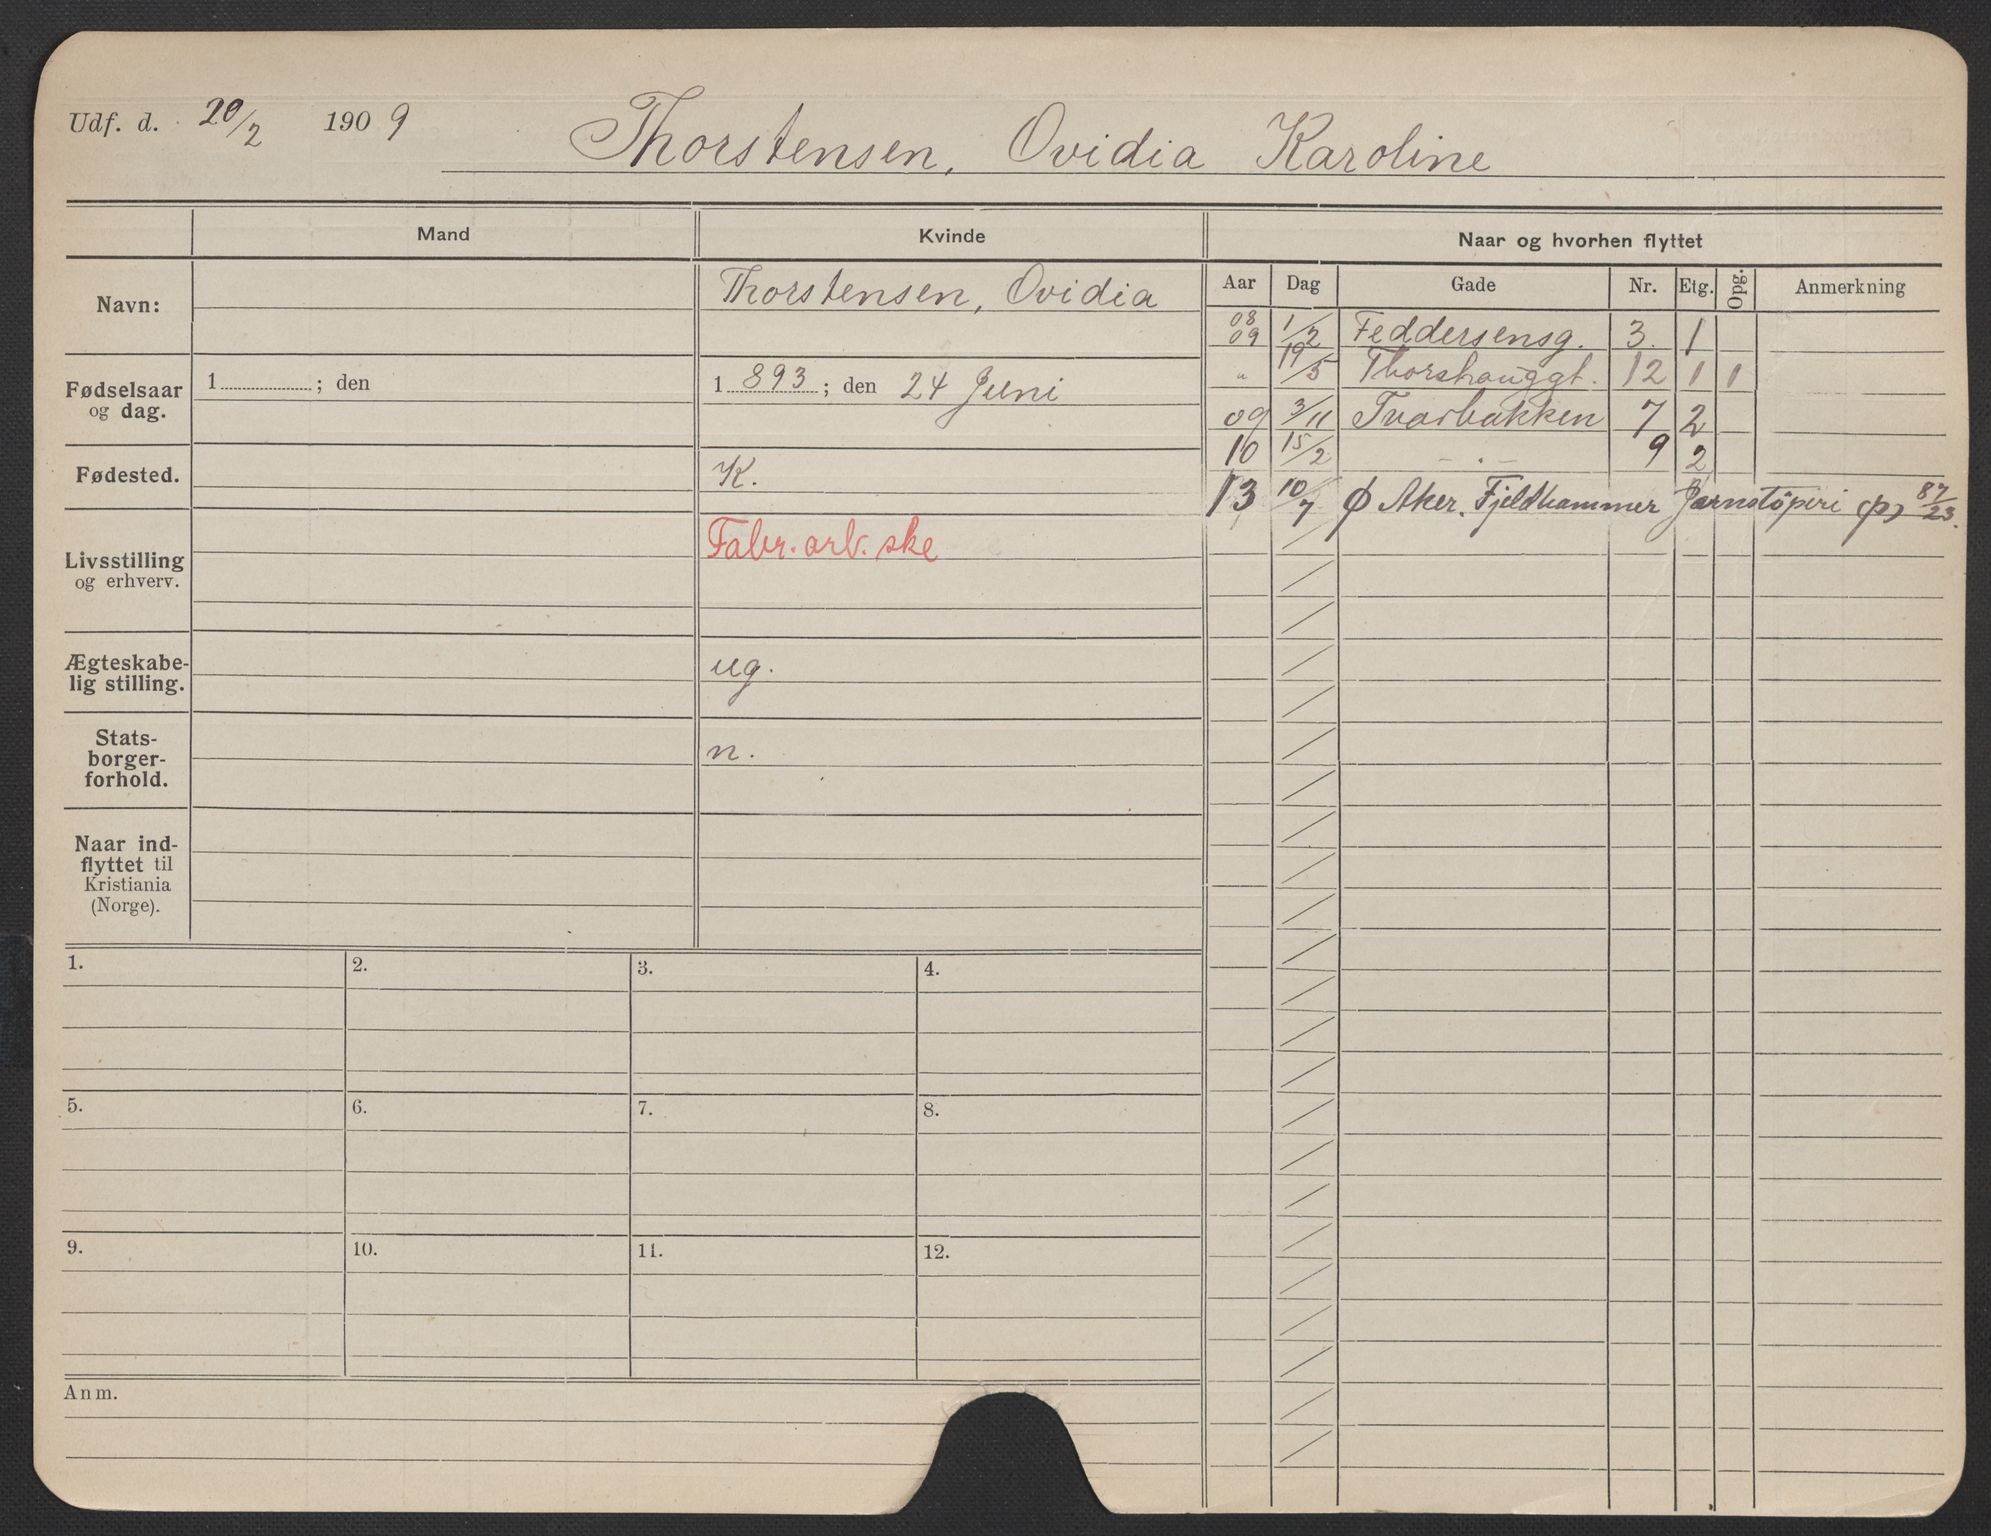 Udf. d. 20/2 1909
Thorstensen, Ovidia Karoline
Mand Kvinde Naar og hvorhen flyttet
Navn: Thorstensen, Ovidia
Aar Dag Gade Nr. Etg. Opg. Anmerkning
08
09 1/2 Feddersensg. 3. 1
" 19/5 Thorshauggt. 12 1 1
09 3/11 Tvarbakken 7 2
10 15/2 - " - 9 2
13 10/7 Φ Aker. Fjeldhammer Jernstöperi (p) 87/23.
Fødselsaar
og dag.
1 ; den
1 893 ; den 24 Juni
Fødested. K.
Livsstilling
og erhverv.
Fabr. arb. ske
Ægteskabe-
lig stilling.
ug.
Stats-
borger-
forhold.
n.
Naar ind-
flyttet til
Kristiania
(Norge).
1. 2. 3. 4.
5. 6. 7. 8.
9. 10. 11. 12.
Anm.